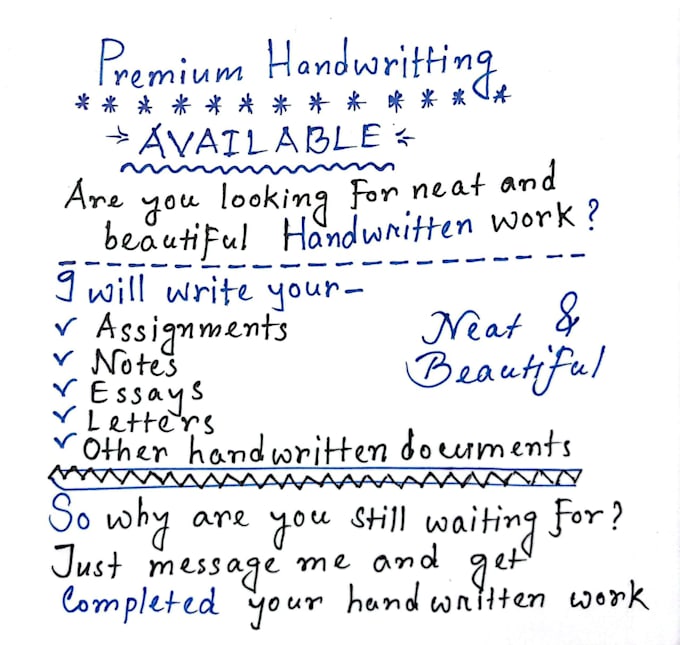 Premium Handwritting
* * * * * * * * * * * * *
→ AVAILABLE ←
Are you looking For neat and
beautiful Handwritten work?
I will write your-
✓ Assignments
✓ Notes
✓ Essays
✓ Letters
✓ Other handwritten documents
Neat &
Beautiful
So why are you still waiting For?
Just message me and get
Completed your handwritten work